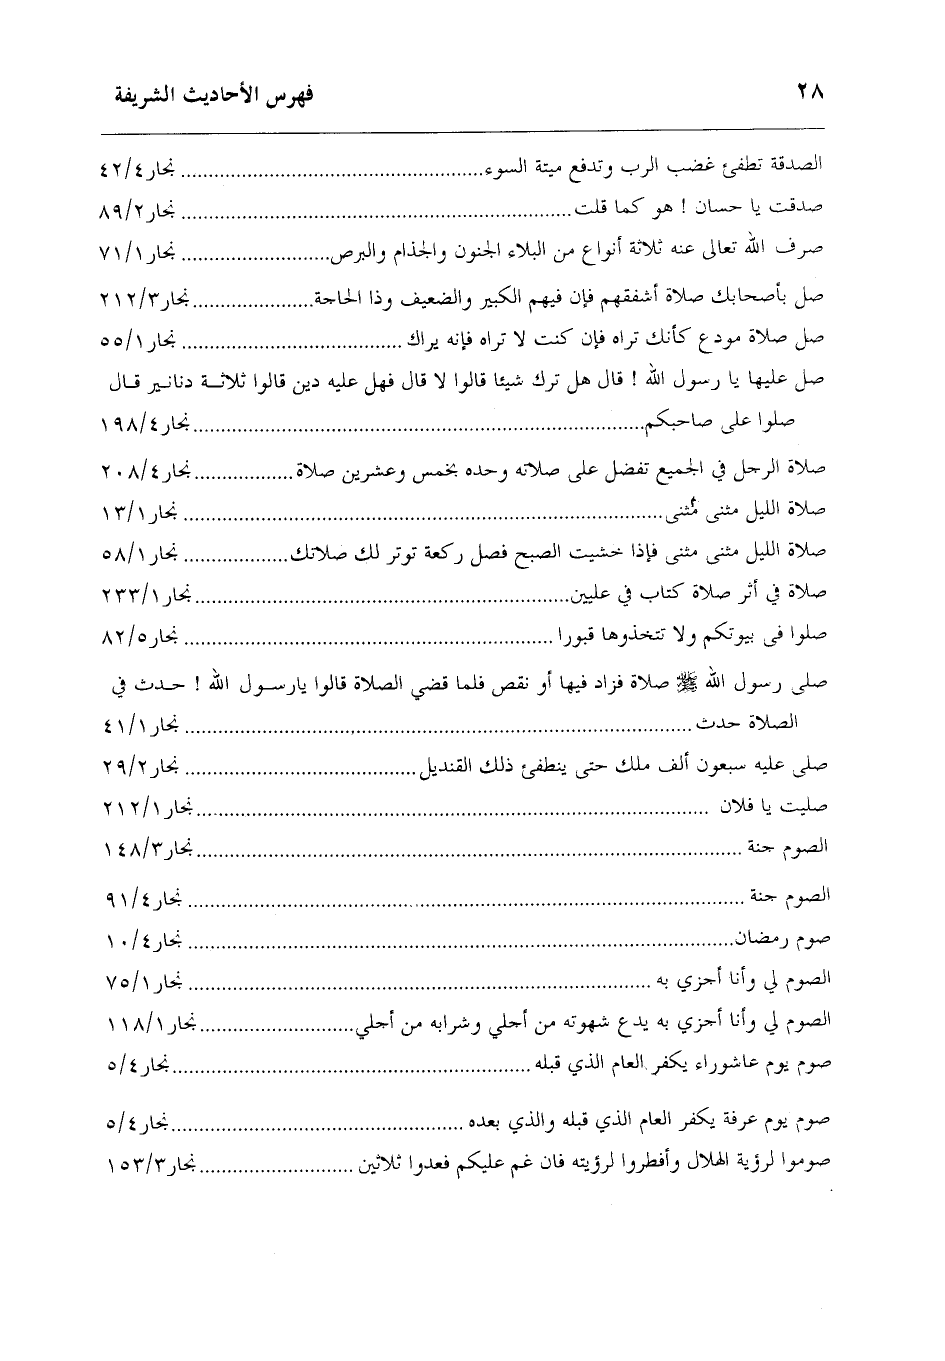 ٢٨ فهرس الأحاديث الشريفة
الصدقة تطفئ غضب الرب وتدفع ميتة السوء................................................نجار٤٢/٤
صدقت يا حسان ! هو كما قلت................................................نجار٨٩/٢
صرف الله تعالى عنه ثلاثة أنواع من البلاء الجنون والجذام والبرص...........................نجار٧١/١
صل بأصحابك صلاة أشفقهم فإن فيهم الكبير والضعيف وذا الحاجة......................نجار٢١٢/٣
صل صلاة مودع كأنك تراه فإن كنت لا تراه فإنه يراك ......................................نجار٥٥/١
صل عليها يا رسول الله ! قال هل ترك شيئا قالوا لا قال فهل عليه دين قالوا ثلاثة دنانير قال
صلوا على صاحبكم................................................نجار١٩٨/٤
صلاة الرجل في الجميع تفضل على صلاته وحده بخمس وعشرين صلاة..................نجار٢٠٨/٤
صلاة الليل مثنى مثنى................................................نجار١٣/١
صلاة الليل مثنى مثنى فإذا خشيت الصبح فصل ركعة توتر لك صلاتك...................نجار٥٨/١
صلاة في أثر صلاة كتاب في عليين................................................نجار٢٣٣/١
صلوا فى بيوتكم ولا تتخذوها قبورا ................................................نجار٨٢/٥
صلى رسول الله ﷺ صلاة فزاد فيها أو نقص فلما قضي الصلاة قالوا يارسول الله ! حدث في
الصلاة حدث ................................................نجار٤١/١
صلى عليه سبعون ألف ملك حتى ينطفئ ذلك القنديل......................................نجار٢٩/٢
صليت يا فلان ................................................نجار٢١٢/١
الصوم جنة ................................................نجار١٤٨/٣
الصوم جنة ................................................نجار٩١/٤
صوم رمضان................................................نجار١٠/٤
الصوم لي وأنا أجزي به ................................................نجار٧٥/١
الصوم لي وأنا أجزي به يدع شهوته من أجلي وشرابه من أجلي............................نجار١١٨/١
صوم يوم عاشوراء يكفر العام الذي قبله ................................................نجار٥/٤
صوم يوم عرفة يكفر العام الذي قبله والذي بعده ................................................نجار٥/٤
صوموا لرؤية الهلال وأفطروا لرؤيته فان غم عليكم فعدوا ثلاثين ............................نجار١٥٣/٣